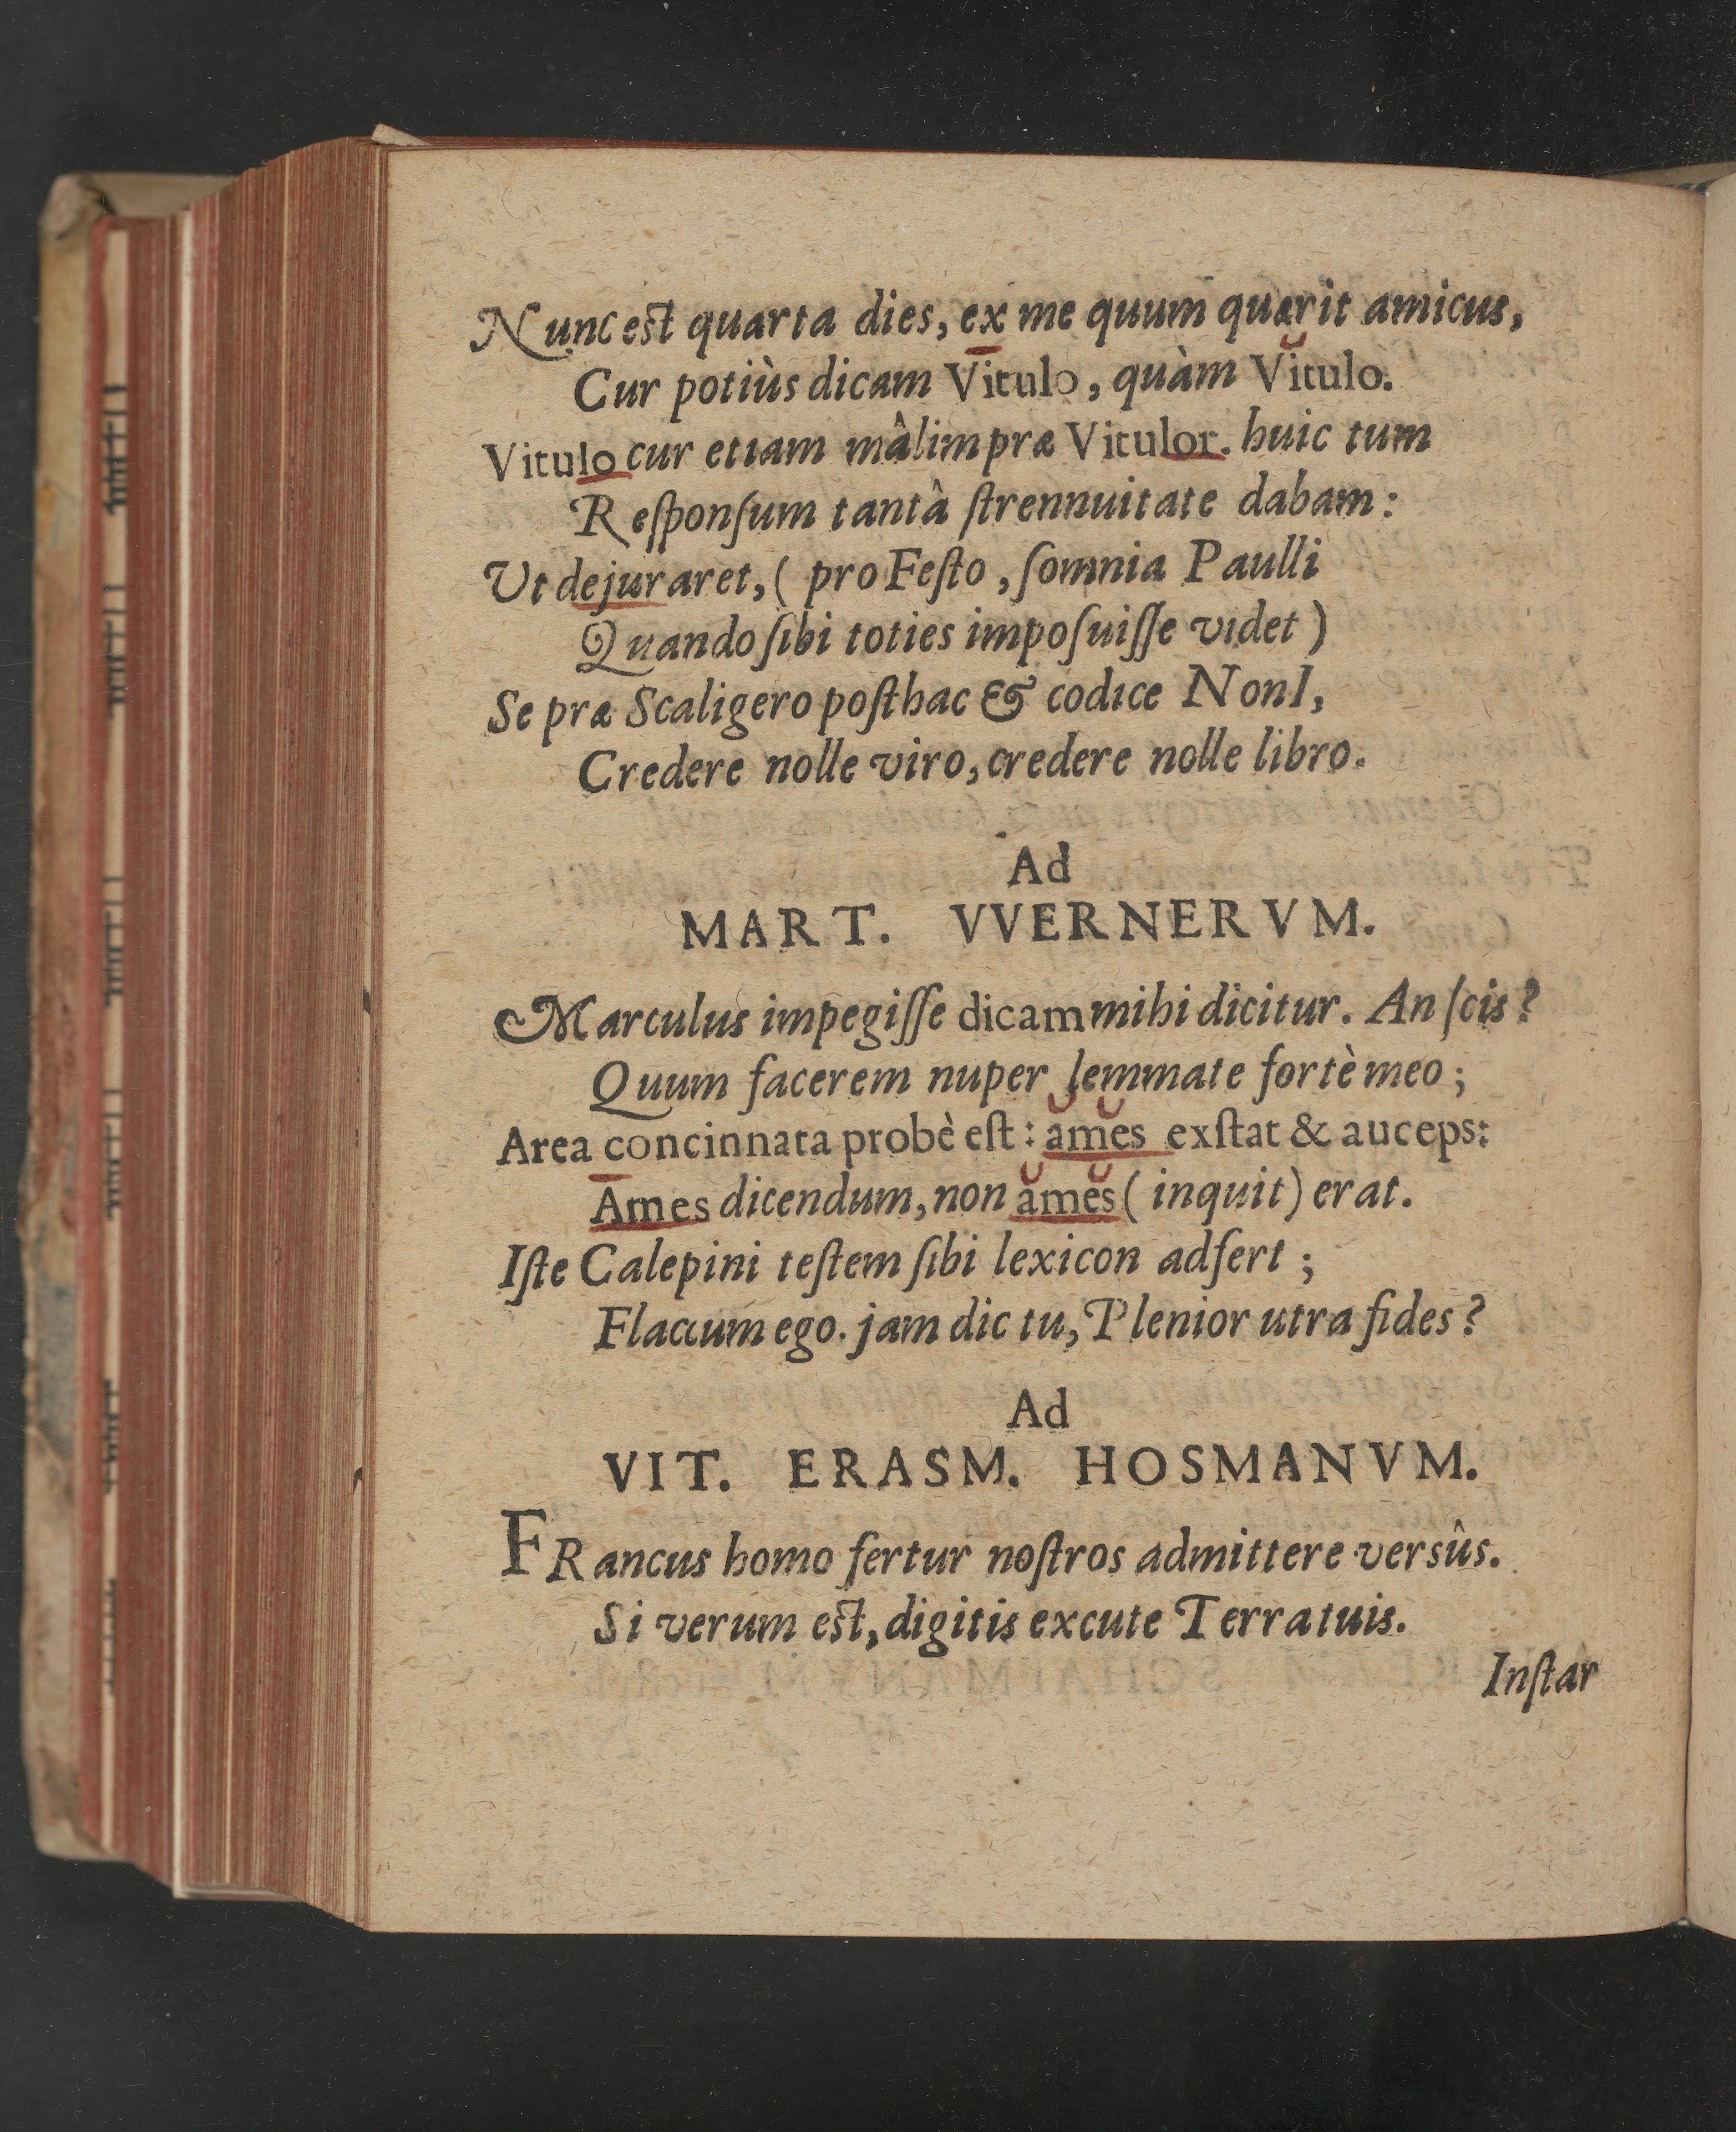 Nunc est quarta dies, ex me quum quærit amicus,
Cur potiùs dicam Vitulo, quàm Vitulo.
Vitulo cur etiam mâlim præ Vitulor. huic tum
Reſponſum tantâ ſtrennuitate dabam:
Ut dejuraret, ( pro Feſto, ſomnia Paulli
Quando ſibi toties impoſuiſſe videt )
Se præ Scaligero poſthac & codice NonI,
Credere nolle viro, credere nolle libro.
Ad
MART. VVERNERVM.
Marculus impegiſſe dicam mihi dicitur. An ſcis?
Quum facerem nuper lemmate fortè meo;
Area concinnata probè eſt: ames exſtat & auceps:
Ames dicendum, non ames ( inquit) erat.
Iſte Calepini teſtem ſibi lexicon adfert;
Flaccum ego. jam dic tu, Plenior utra fides?
Ad
VIT. ERASM. HOSMANVM.
FRancus homo fertur noſtros admittere versûs.
Si verum eſt, digitis excute Terra tuis.
Inſtar